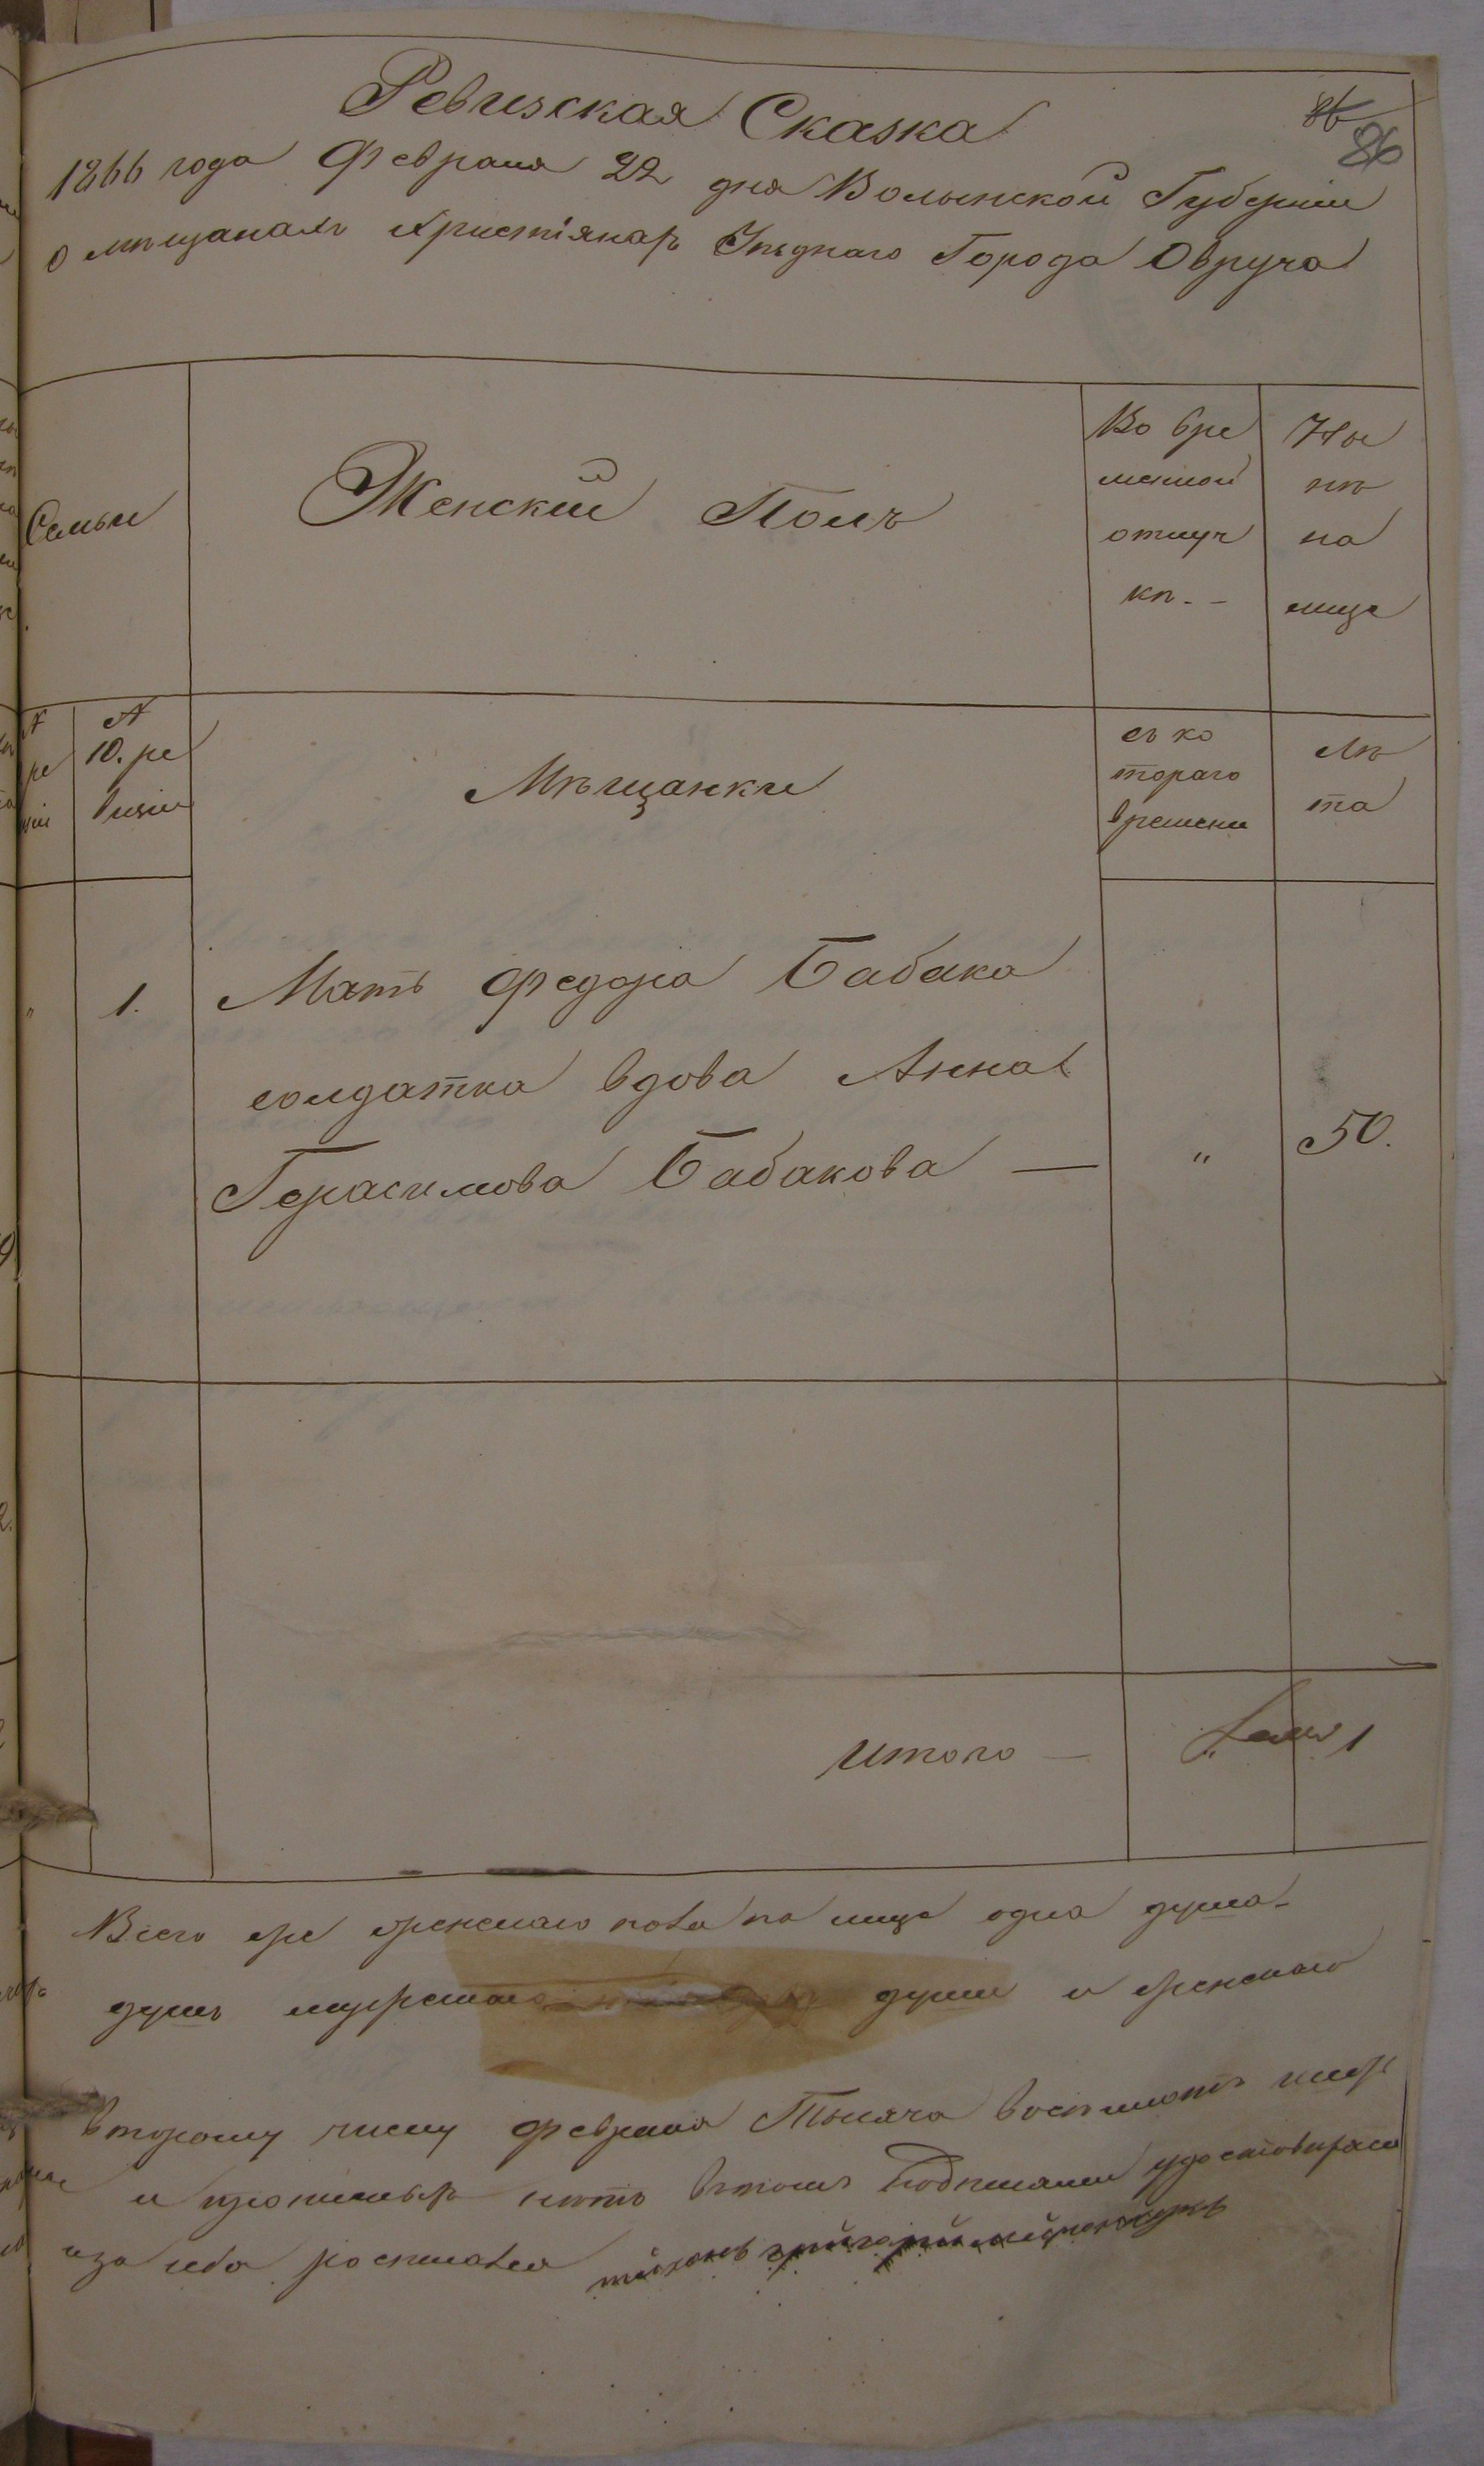 86
86
Ревизская Сказка
1866 года Февраля 22 дня Волынской Губерніи
о мѣщанахъ христіянахъ Уѣзднаго Города Овруча
Семьи
Женскій Полъ
Во вре
менной
отлуч
кѣ. -
Ны
нѣ
на
лице
№
ре
№
10. ре
визіи
Мѣщанки
съ ко
тораго
времени
Лѣ
та
"
1.
Мать Федора Бабака
солдатка вдова Анна
Герасимова Бабакова —
"
50.
Итого —
1
Всего же женскаго пола на лице одна душа
душъ мужескаго души и женскаго
второму числу февраля Тысяча восемьсотъ шесть
и прописныхъ нѣтъ втомъ подписами удостоверяю
иза себа росписался